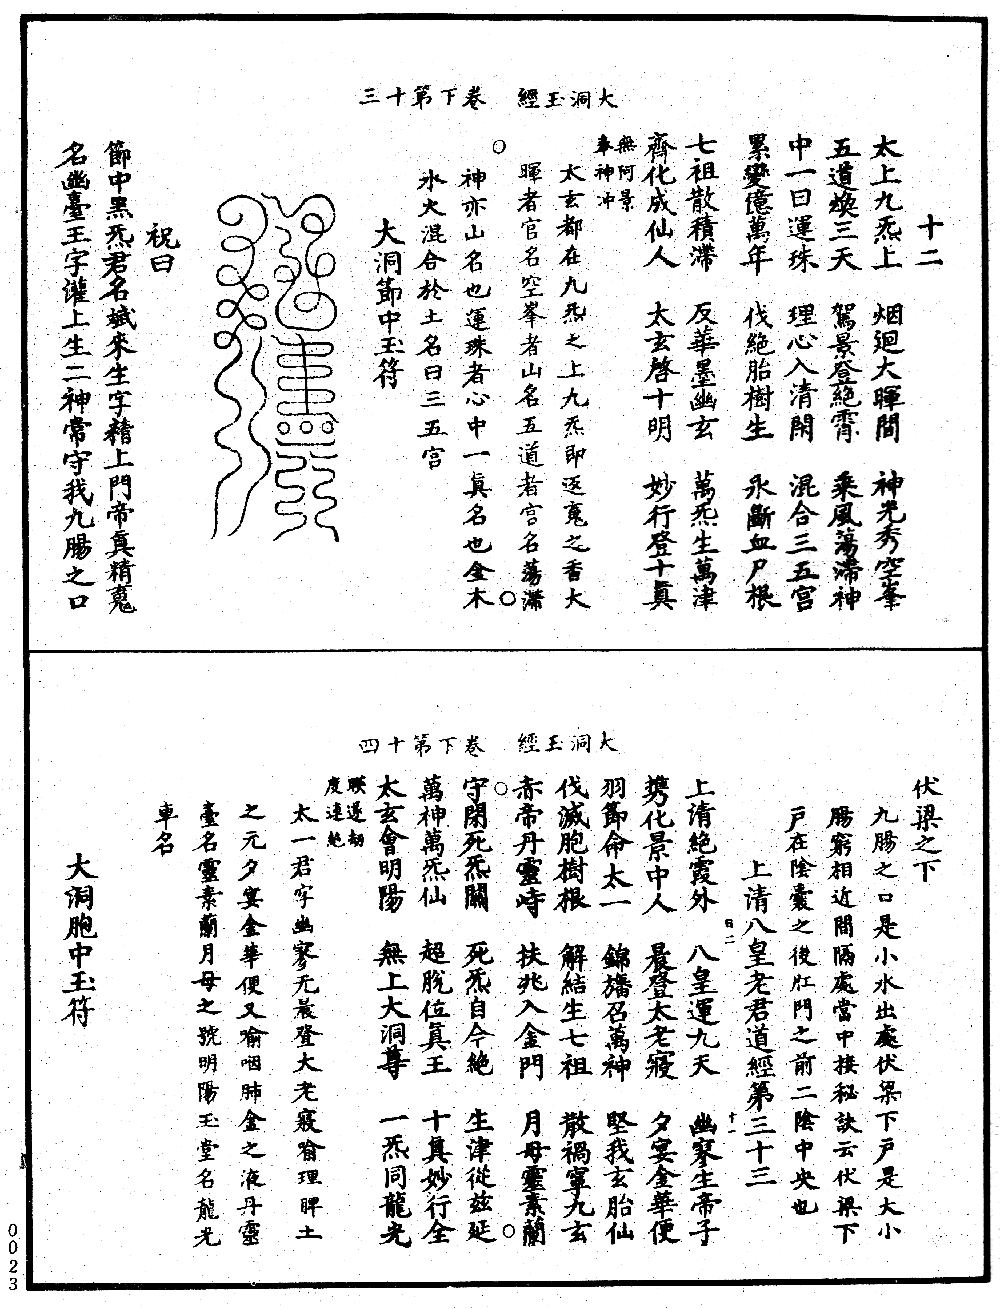 大洞玉經 卷下第十三
十二
太上九炁上 烟迴大暉間 神光秀空峯
五道煥三天 駕景登絕霄 乘風蕩滯神
中一曰運珠 理心入清閑 混合三五宮
累變億萬年 伐絕胎樹生 永斷血尸根
七祖散積滯 反華墨幽玄 萬炁生萬津
齊化成仙人 太玄啓十明 妙行登十真
無阿景
奉神冲
太玄都在九炁之上九炁即返䰟之香大
暉者官名空峯者山名五道者宮名蕩滯
神亦山名也運珠者心中一真名也金木
水火混合於土名曰三五宮
大洞節中玉符
祝曰
節中黑炁君名斌來生字精上門帝真精䰟
名幽臺王字灌上生二神常守我九腸之口
大洞玉經 卷下第十四
伏梁之下
九腸之口是小水出處伏梁下戶是大小
腸窮相近間隔處當中接秘訣云伏梁下
戶在陰囊之後肛門之前二陰中央也
上清八皇老君道經第三十三
四二 十一
上清絕霞外 八皇運九天 幽寥生帝子
携化景中人 晨登太老寢 夕宴金華便
羽節命太一 錦旛召萬神 堅我玄胎仙
伐滅胞樹根 解結生七祖 散禍寧九玄
赤帝丹靈峙 扶兆入金門 月母靈素蘭
守閉死炁關 死炁自今絕 生津從兹延
萬神萬炁仙 超脫位真王 十真妙行全
太玄會明陽 無上大洞尊 一炁同龍光
联遏劫
度連絕
太一君字幽寥无晨登大老寢喻理脾土
之元夕宴金華便又喻咽肺金之液丹靈
臺名靈素蘭月母之號明陽玉堂名龍光
車名
大洞胞中玉符
0023